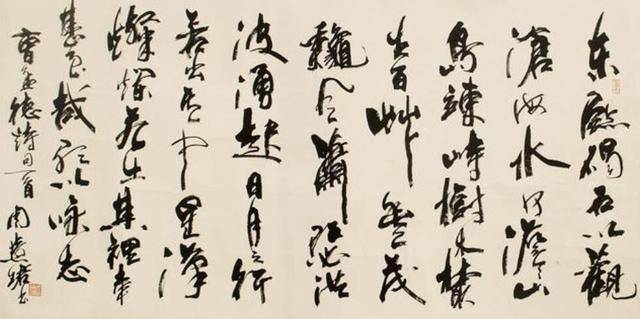 东臨碣石以觀
滄海水何澹澹山
島竦峙樹木叢
生百艸豐茂
龝風蕭瑟洪
波湧起日月之行
若出其中星漢
燦爛若出其裡幸
甚至哉歌以咏志
曹孟德詩一首 周慧珺书